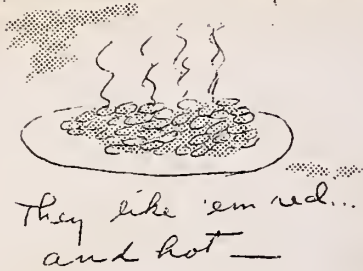 They like 'em red...
and hot —